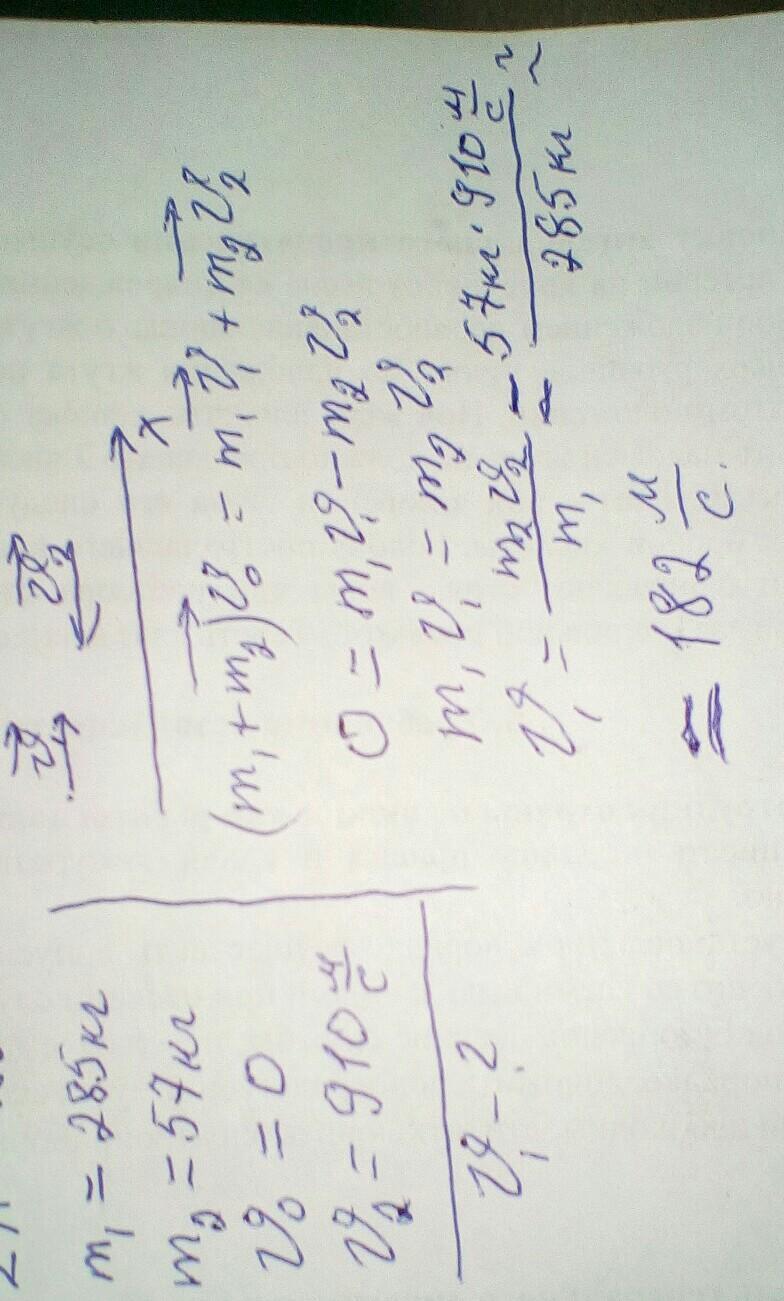 m₁ = 285 кг
m₂ = 57 кг
υ₀ = 0
υ₂ = 910 м/с
υ₁ - ?
υ⃗₁ υ⃗₂
x
(m₁ + m₂)υ⃗₀ = m₁υ⃗₁ + m₂υ⃗₂
0 = m₁υ₁ - m₂υ₂
m₁υ₁ = m₂υ₂
υ₁ = m₂υ₂ / m₁ = 57 кг · 910 м/с / 285 кг ≈
≈ 182 м/с.